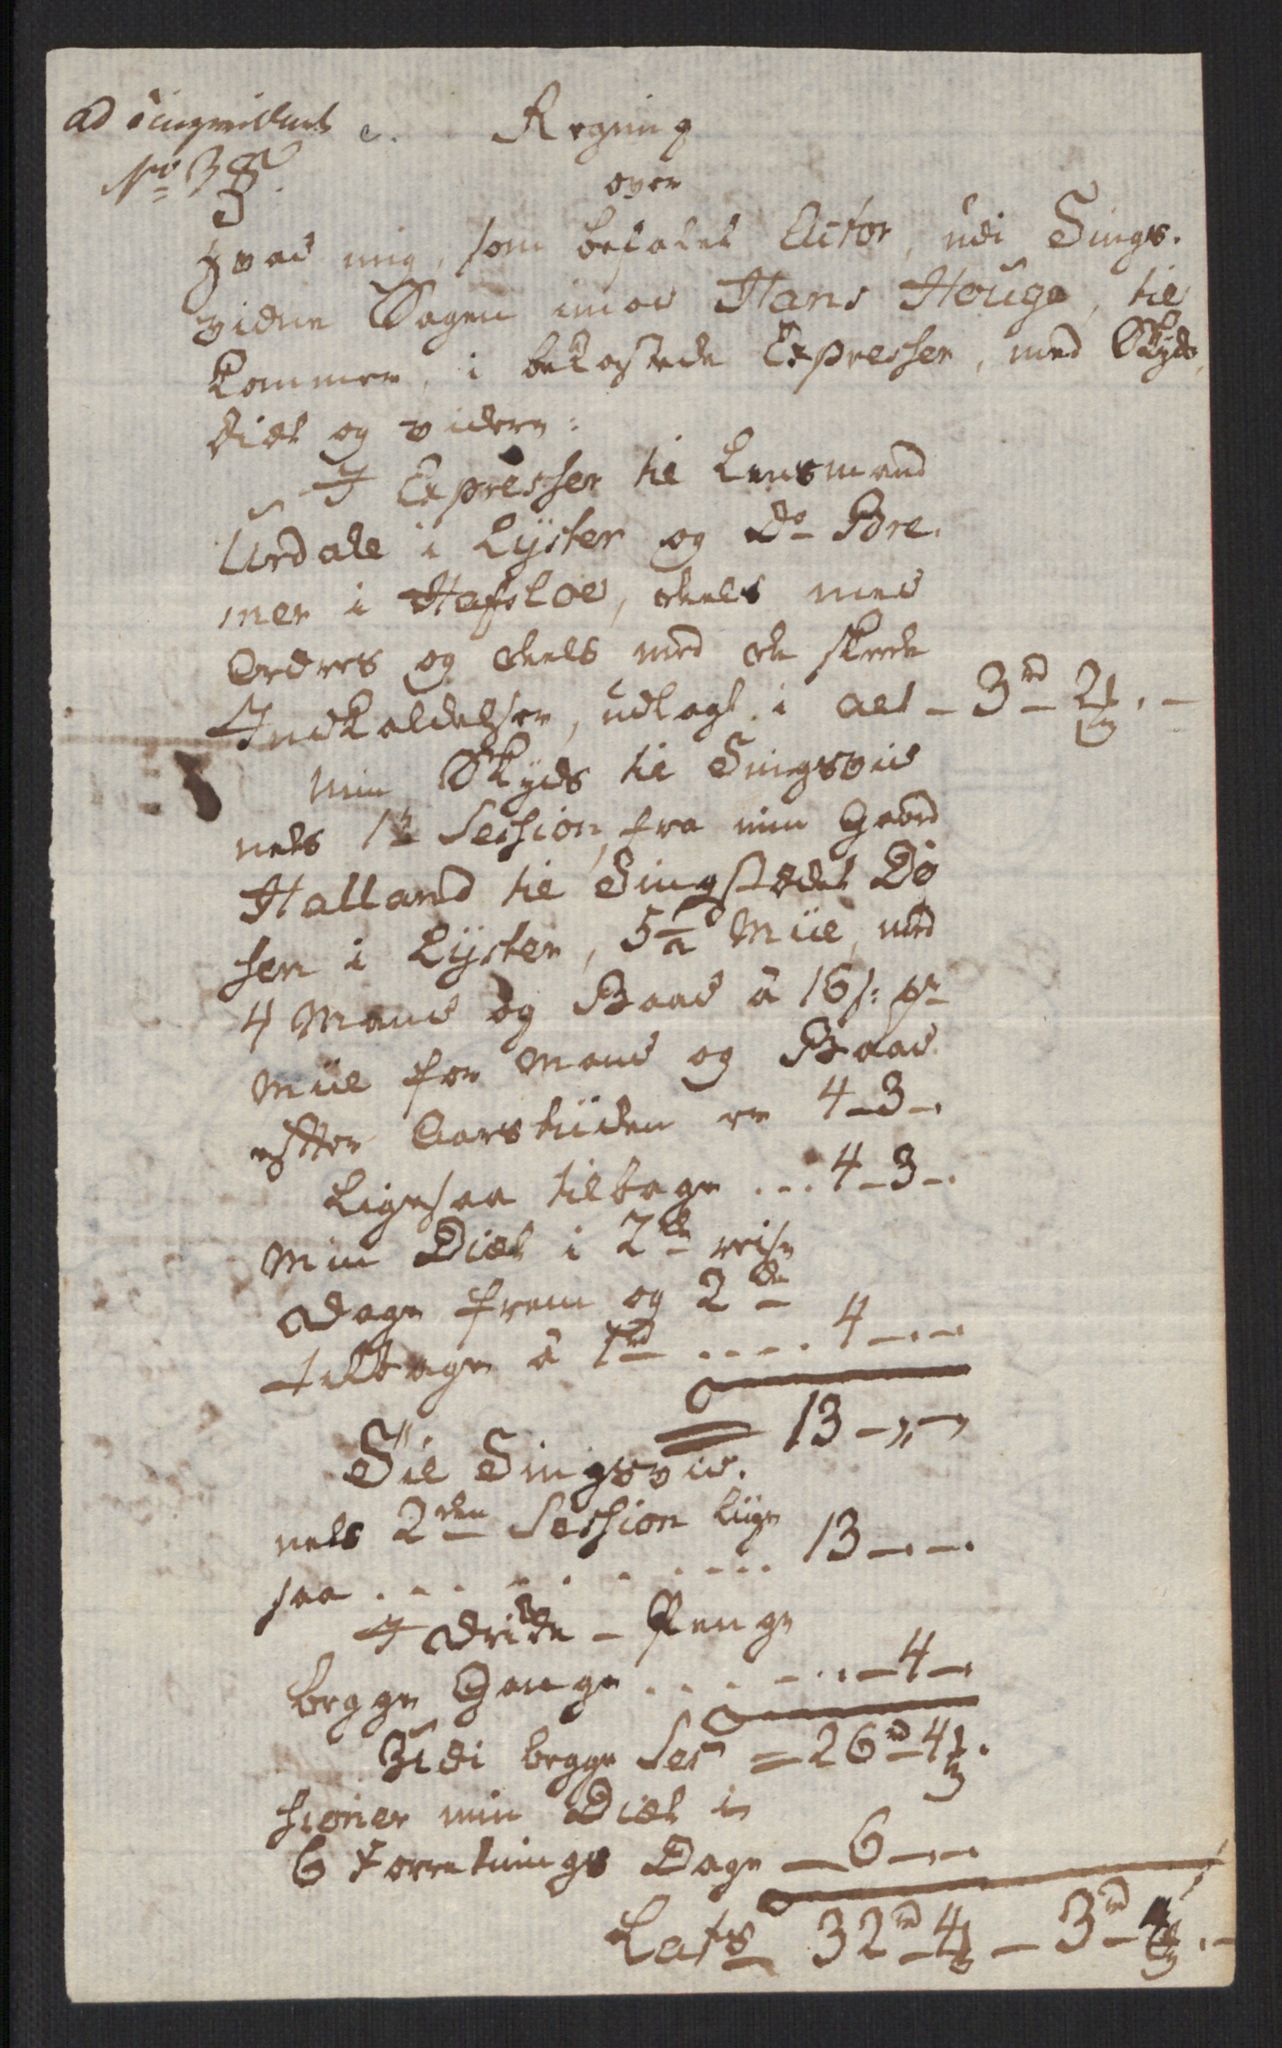 ad Tingsvidnet c. Regning
No 38. over
hvad mig, som befalet Actor, udi Tings-
vidne Sagen imod Hans Houge, til
kommer, i bekostede Expresser, med Skyds,
Diæt og videre:
I Expresser til Lensmand
Urdale i Lÿster og Do Bre-
mer i Hafsloe, deels med
Ordres og deels med de skede
Indkaldelser, udlagt i alt - 3 rd 2 .-
Min Skyds til Tingsvid
nets 1te Session, fra min Gaard
Halland til Tingstedet Dø
sen i Lÿster, 5 1/2 Miil, med
4 Mand og Baad à 16 s: pr
Miil for Mand og Baad
efter Aarstiiden er 4-3-.
Ligesaa tilbage ... 4-3-.
Min Diæt i 2de reise
Dage frem og 2de
tilbage à 1 rd .... 4-.-.
13-„-„
Til Tingsvid-
nets 2den Session liige
saa . . . . . . . . . 13-.-.
I Drikke-Penge
begge Gange . . . . . . -4-.
Udi begge Ses = 26 rd 4 .
sioner min Diæt i
6 Forretnings Dage - 6-.-.
Lats 32 rd 4 - 3 rd .-